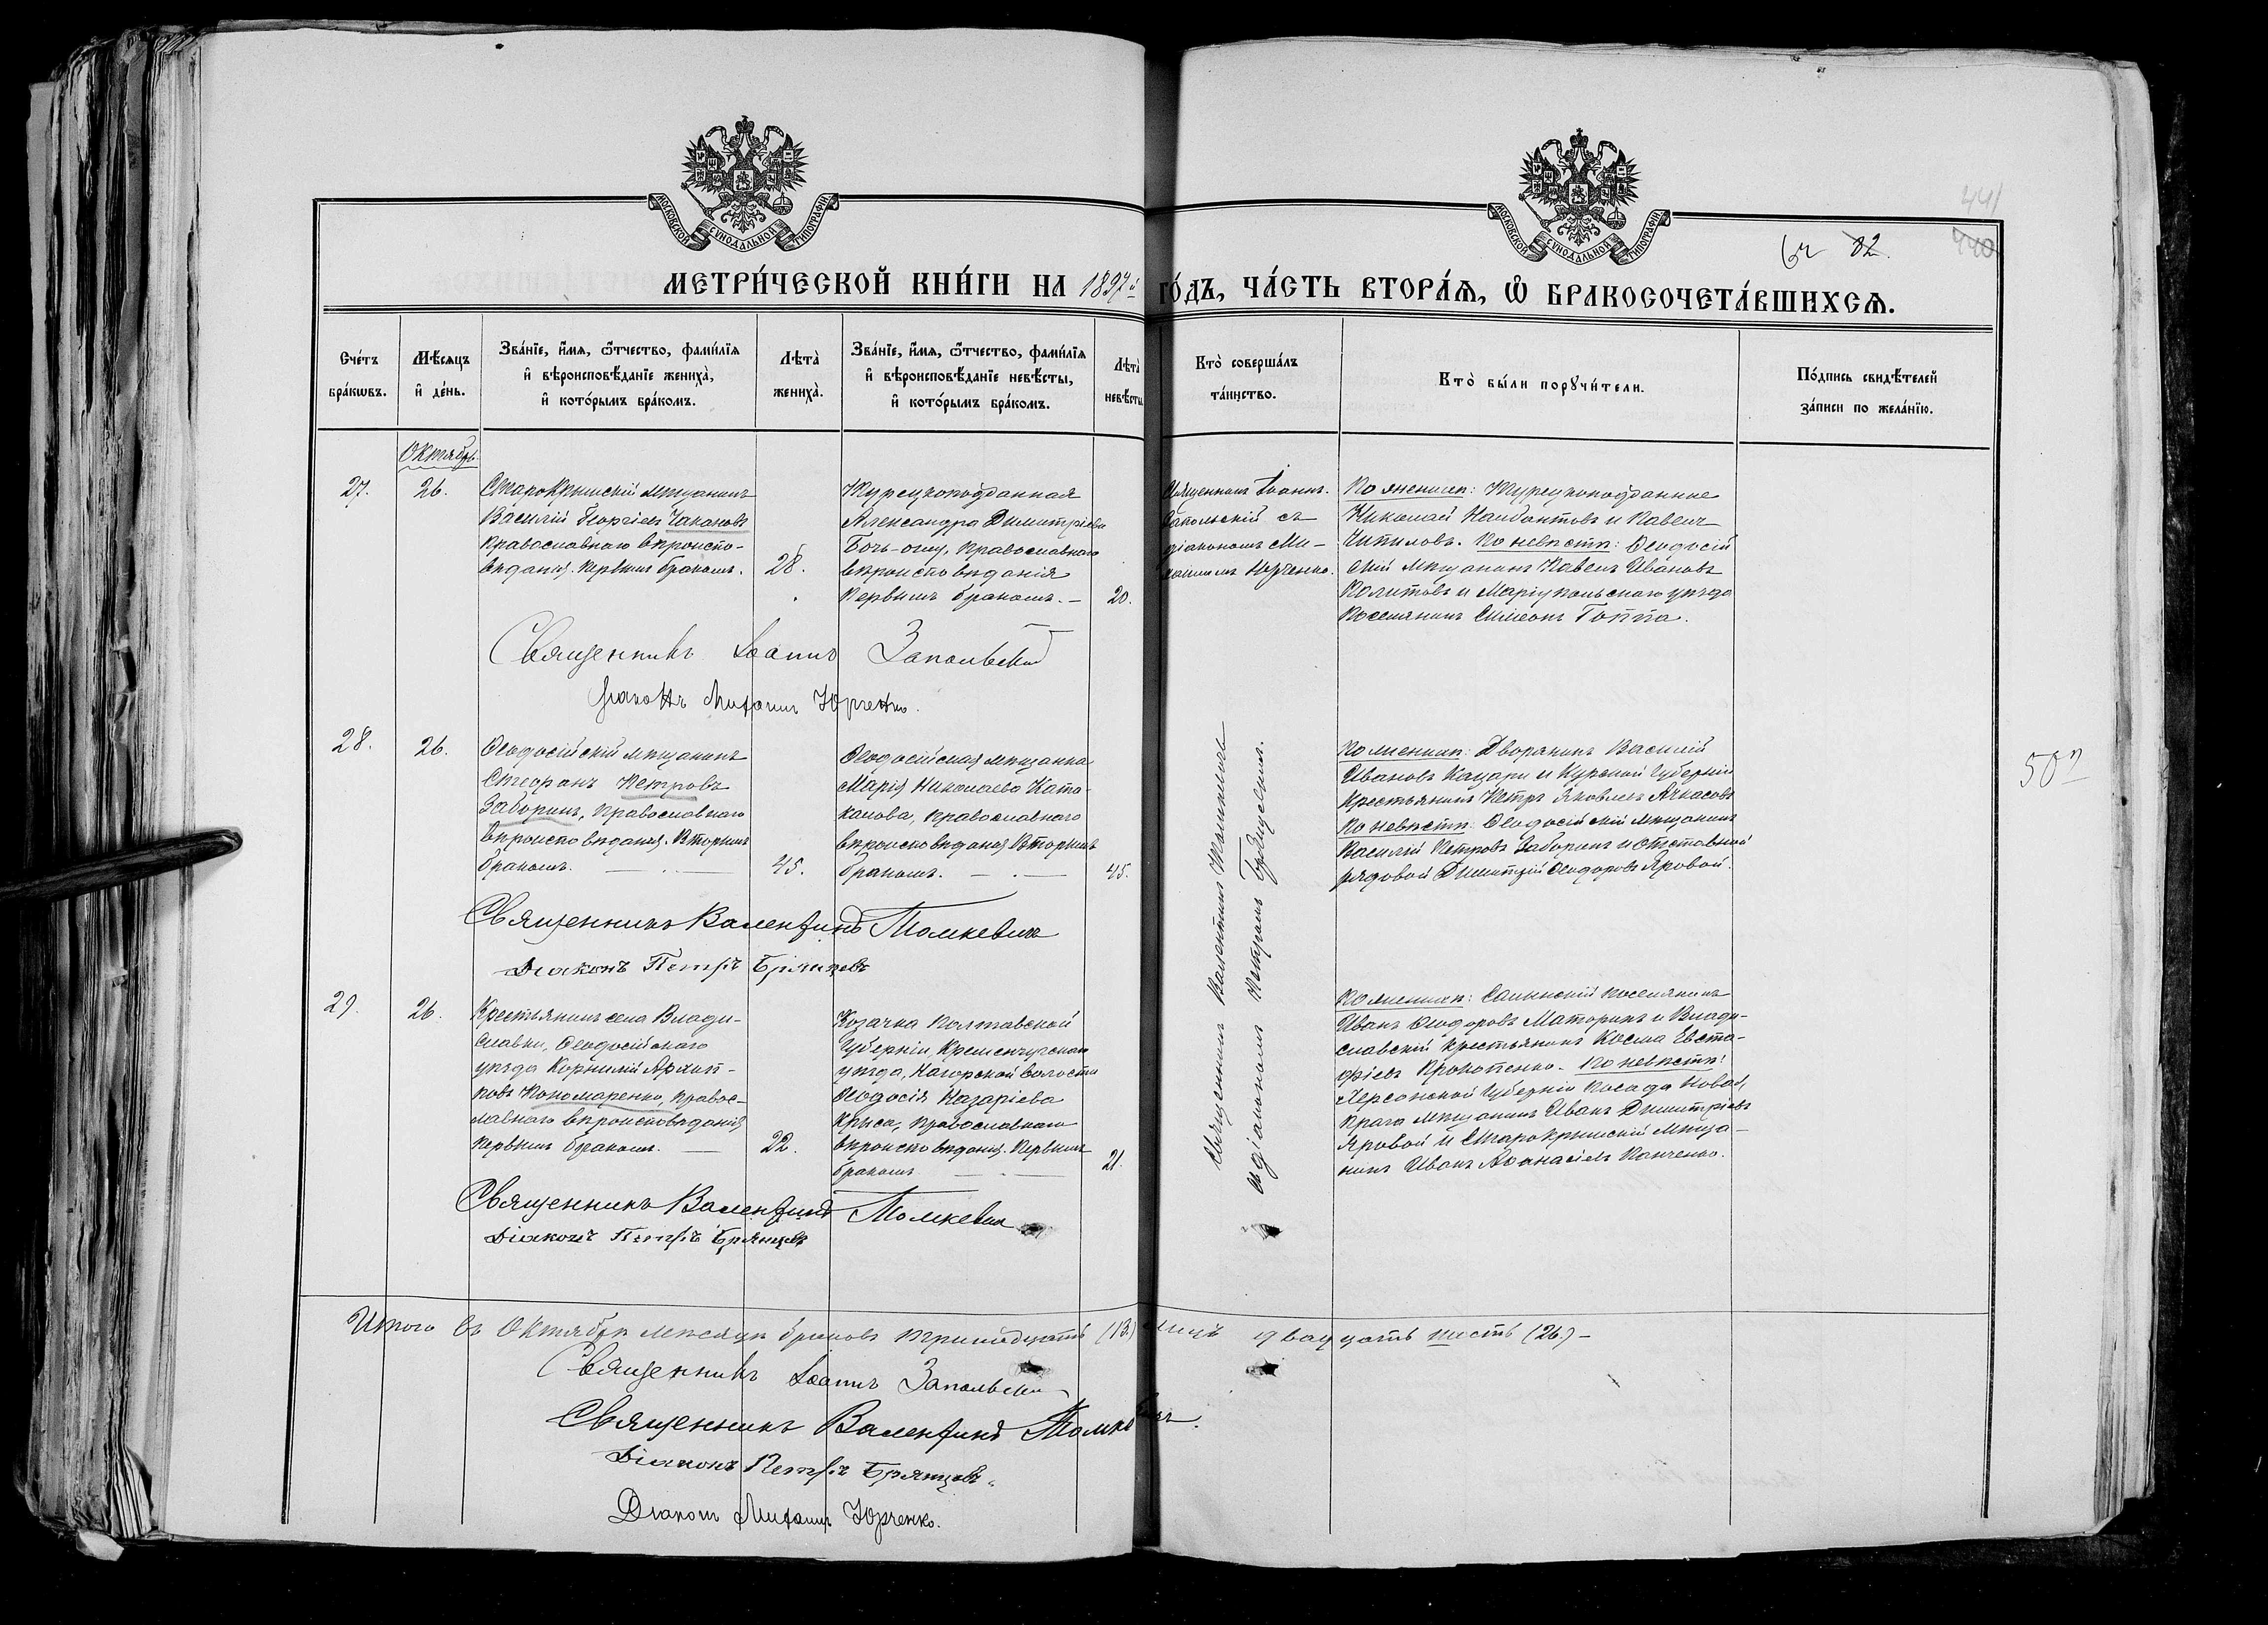 МОСКОВСКОЙ СѴНОДАЛЬНОЙ ТИПОГРАФІИ
МОСКОВСКОЙ СѴНОДАЛЬНОЙ ТИПОГРАФІИ
441
440
82.
МЕТРИ́ЧЕСКОЙ КНИ́ГИ НА 1897й ГО́ДЪ, ЧА́СТЬ ВТОРА́Ѧ, Ѽ БРАКОСОЧЕТА́ВШИХСѦ.
Сче́тъ бра́кѡвъ.
Мѣ́сѧцъ и҆ де́нь.
Зва́нїе, и҆́мѧ, ѻ҆́тчество, фами́лїѧ
и҆ вѣроисповѣ́данїе жениха̀,
и҆ кото́рымъ бра́комъ.
Лѣта̀ жениха̀.
Зва́нїе, и҆́мѧ, ѻ҆́тчество, фами́лїѧ
и҆ вѣроисповѣ́данїе невѣ́сты,
и҆ кото́рымъ бра́комъ.
Лѣта̀ невѣ́сты
Кто̀ соверша́лъ
та́инство.
Кто̀ бы́ли порꙋчи́тели.
По́дпись свидѣ́телей
за́писи по жела́нїю.
Октябрь
27.
26.
Старокрымскій мѣщанинъ
Василій Георгіевъ Чакановъ
православнаго вѣроиспо-
вѣданія. Первымъ бракомъ.
28.
Турецкоподданная
Александра Димитріева
Бочъ-оглу, православнаго
вѣроисповѣданія
Первымъ бракомъ. —
20.
Священникъ Іоаннъ
Запольскій съ
діакономъ Ми-
хаиломъ Юрченко.
По женихѣ: Турецкоподданные
Николай Наибантовъ и Павелъ
Читиловъ. По невѣстѣ: Ѳеодосій
скій мѣщанинъ Павелъ Ивановъ
Политовъ и Маріупольскаго уѣзда
Поселянинъ Симеонъ Топпа.
Священникъ Іоаннъ Запольскій
Діаконъ Михаилъ Юрченко.
28.
26.
Ѳеодосійскій мѣщанинъ
Стефанъ Петровъ
Заборинъ, православнаго
вѣроисповѣданія. Вторымъ
бракомъ.
45.
Ѳеодосійская мѣщанка
Марія Николаева Като-
канова, православнаго
вѣроисповѣданія Вторымъ
бракомъ.
45.
Священникъ Валентинъ Томкевичъ
съ діакономъ Петромъ Брянцевымъ.
По женихѣ: Дворянинъ Василій
Ивановъ Кацари и Курской Губерніи
Крестьянинъ Петръ Яковлевъ Ачкасовъ
По невѣстѣ: Ѳеодосійскій мѣщанинъ
Василій Петровъ Заборинъ и отставной
рядовой Димитрій Ѳеодоровъ Яровой.
Священникъ Валентинъ Томкевичъ
Діаконъ Петръ Брянцевъ
29.
26.
Крестьянинъ села Влади-
славки, Ѳеодосійскаго
уѣзда Корнилій Архип-
повъ Пономаренко, правос-
лавнаго вѣроисповѣданія
первымъ бракомъ.
22.
Козачка Полтавской
Губерніи, Кременчугскаго
уѣзда, Нагорской волости
Ѳеодосія Назаріева
Крыса, православнаго
вѣроисповѣданія. Первымъ
бракомъ
21.
По женихѣ: Салынскій поселянинъ
Иванъ Ѳеодоровъ Маторинъ и Влади-
славскій крестьянинъ Косма Евста-
фіевъ Прокопенко. По невѣстѣ:
Херсонской Губерніи посада Новой
Праги мѣщанинъ Иванъ Димитріевъ
Яровой и Старокрымскій мѣща-
нинъ Иванъ Аѳанасіевъ Панченко.
Священникъ Валентинъ Томкевичъ
Діаконъ Петръ Брянцевъ
Итого въ Октябрѣ мѣсяцѣ браковъ тринадцать (13.) лицъ двадцать шесть (26.) —
Священникъ Іоаннъ Запольскій
Священникъ Валентинъ Томкевичъ.
Діаконъ Петръ Брянцевъ.
Діаконъ Михаилъ Юрченко.